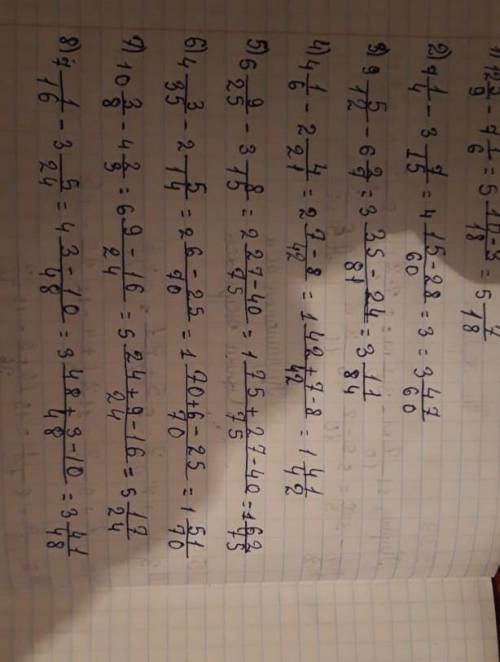 1) 12 5/9 - 7 1/6 = 5 (10-3)/18 = 5 7/18
2) 7 1/4 - 3 7/15 = 4 (15-28)/60 = 3 = 3 47/60
3) 9 5/12 - 6 2/7 = 3 (35-24)/81 = 3 11/84
4) 4 1/6 - 2 4/21 = 2 (7-8)/42 = 1 (42+7-8)/42 = 1 41/42
5) 5 9/25 - 3 8/15 = 2 (27-40)/75 = 1 (75+27-40)/75 = 1 62/75
6) 4 3/35 - 2 5/14 = 2 (6-25)/70 = 1 (70+6-25)/70 = 1 51/70
7) 10 3/8 - 4 2/3 = 6 (9-16)/24 = 5 (24+9-16)/24 = 5 17/24
8) 7 1/16 - 3 5/24 = 4 (3-10)/48 = 3 (48+3-10)/48 = 3 41/48